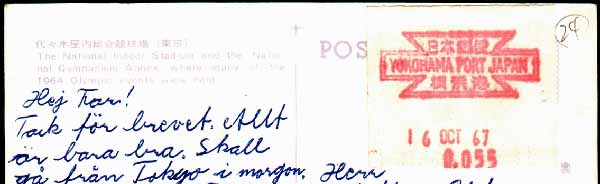 代々木屋内総合競技場（東京）
The National Indoor Stadium and the Natio-
nal Gymnasium Annex, where many of the
1964 Olympic events were held.
POS
24
日本郵便
YOKOHAMA PORT JAPAN
横浜港
16 OCT 67
0.055
Hej Far!
Tack för brevet. Allt
är bara bra. Skall
gå från Tokyo i morgon.
Herr